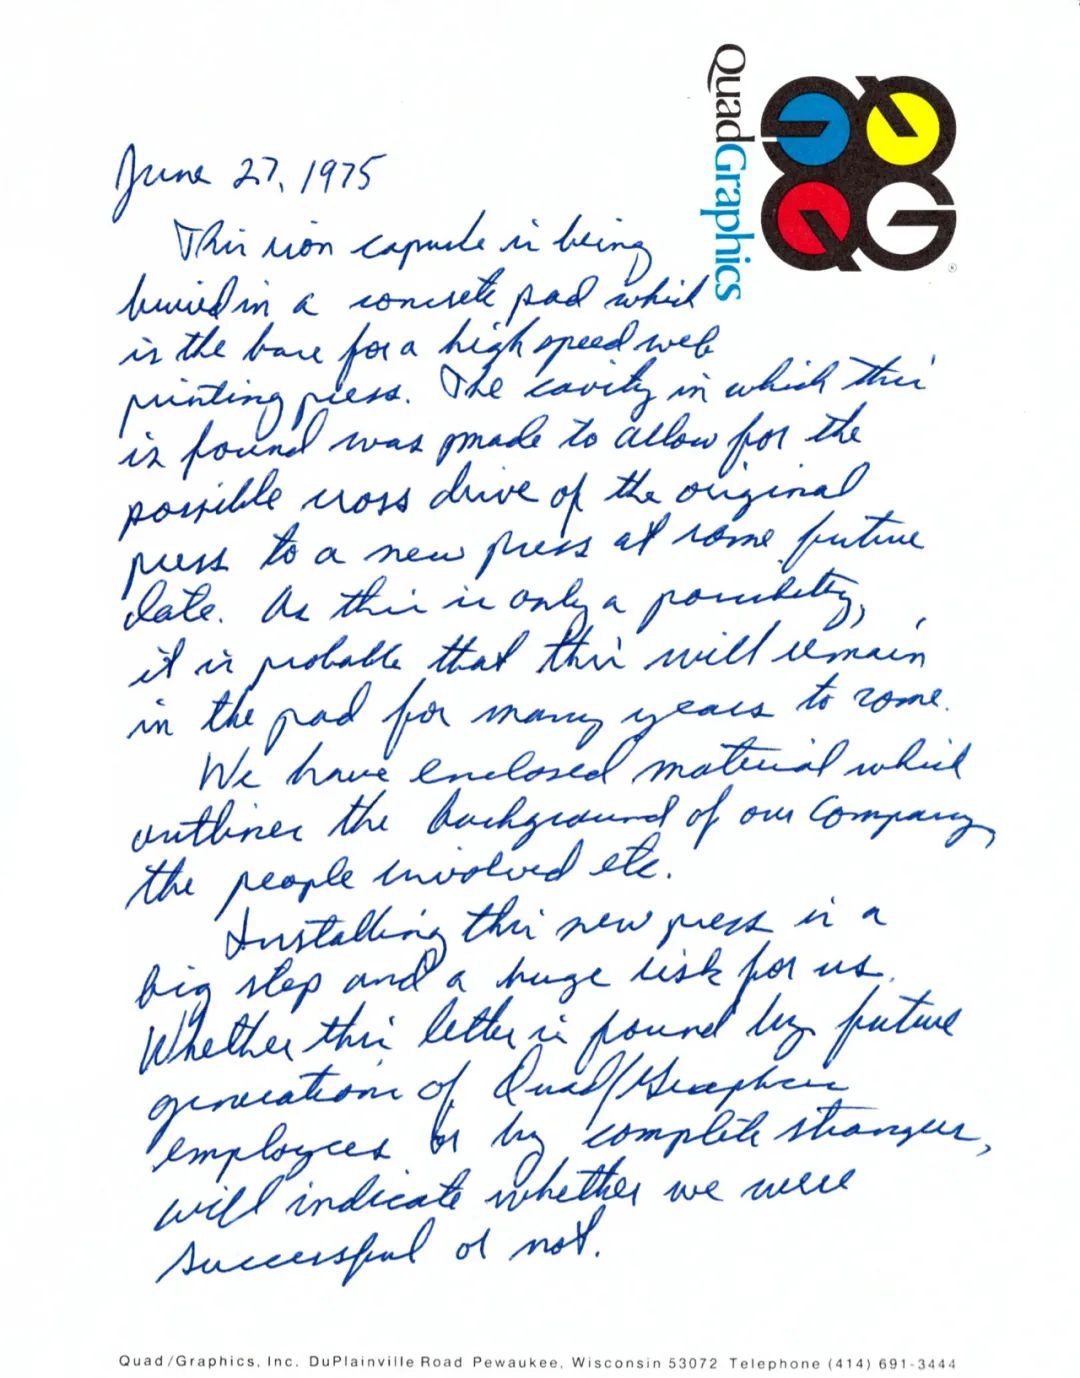 QuadGraphics
June 27, 1975
This iron capsule is being
buried in a concrete pad which
is the base for a high speed web
printing press. The cavity in which this
is found was made to allow for the
possible cross drive of the original
press to a new press at some future
date. As this is only a possibility,
it is probable that this will remain
in the pad for many years to come.
We have enclosed material which
outlines the background of our Company,
the people involved etc.
Installing this new press is a
big step and a huge risk for us.
Whether this letter is found by future
generations of Quad/Graphics
employees or by complete strangers,
will indicate whether we were
successful or not.
Quad/Graphics, Inc. DuPlainville Road Pewaukee, Wisconsin 53072 Telephone (414) 691-3444